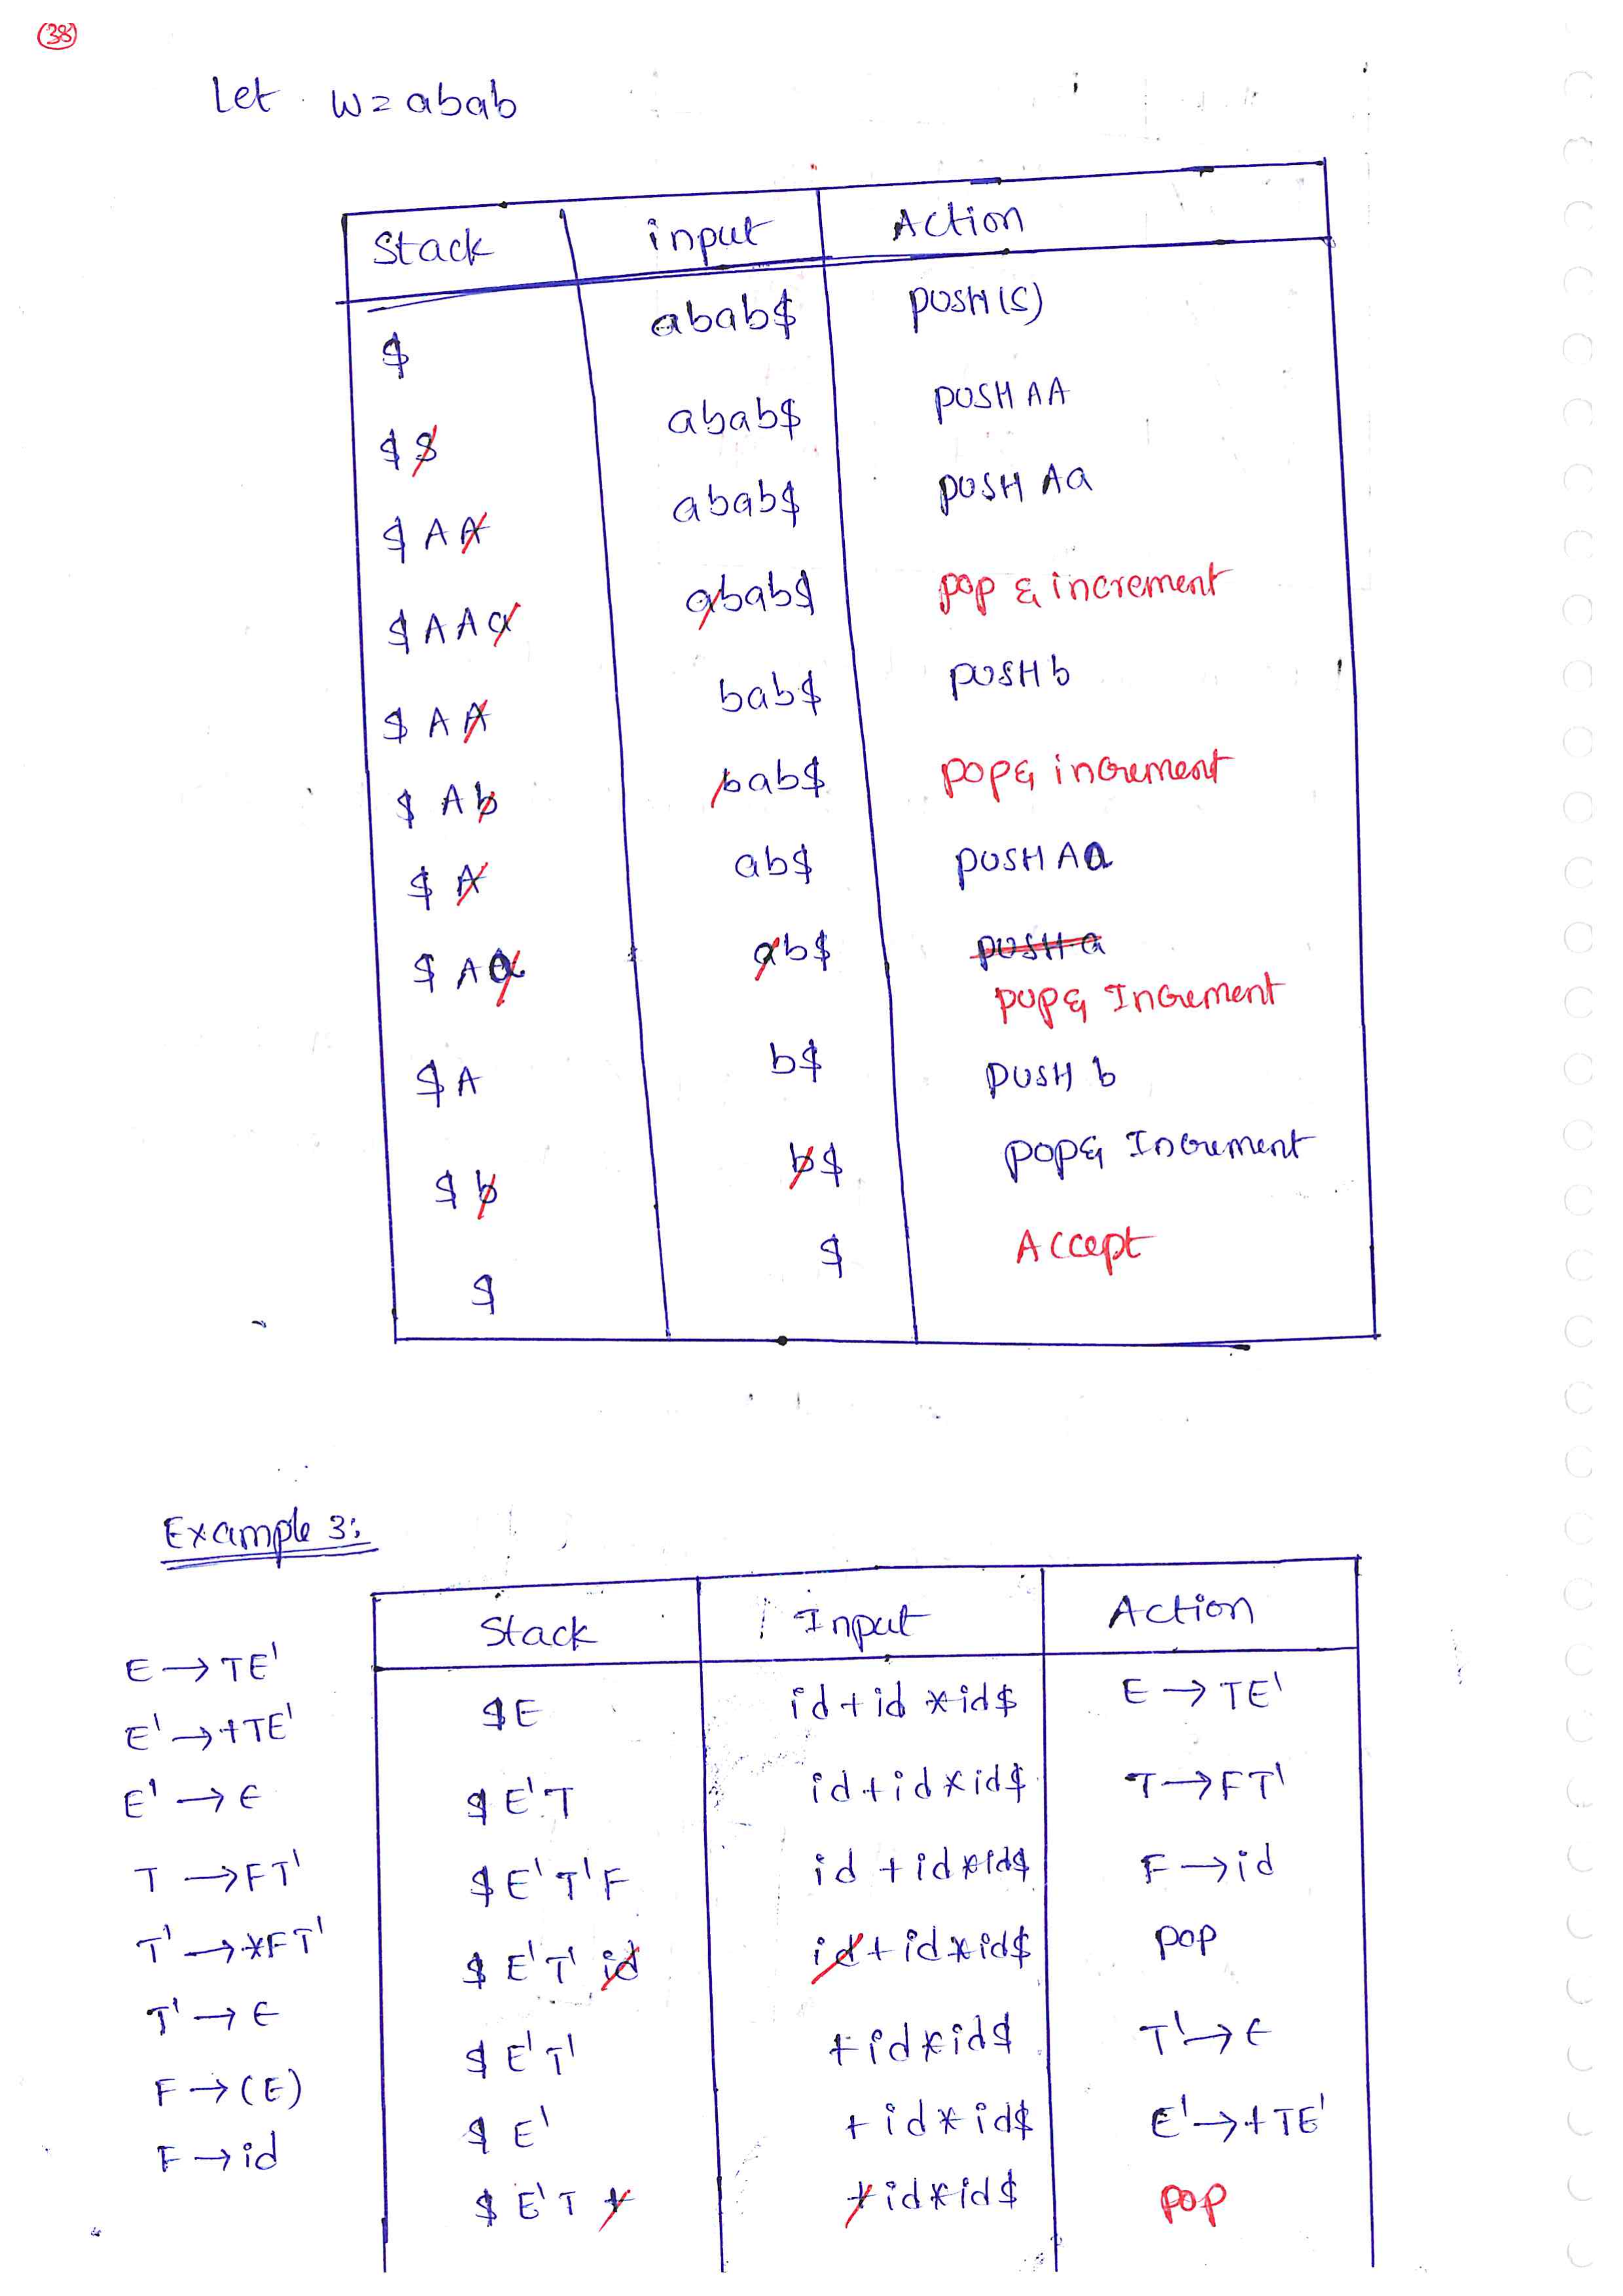 38
Let w = abab
Stack input Action
$ abab$ PUSH(S)
$ $ abab$ PUSH AA
$ A A abab$ PUSH Aa
$ A A a abab$ pop & increment
$ A A bab$ PUSH b
$ A b bab$ pop & increment
$ A ab$ PUSH Aa
$ A a ab$ PUSH a
pop & Increment
$ A b$ PUSH b
$ b b$ pop & Increment
$ $ Accept
Example 3:
Stack Input Action
E → TE'
E' → +TE'
E' → ϵ
T → FT'
T' → *FT'
T' → ϵ
F → (E)
F → id
$E id+id*id$ E → TE'
$E'T id+id*id$ T → FT'
$E'T'F id+id*id$ F → id
$E'T' id id+id*id$ pop
$E'T' +id*id$ T' → ϵ
$E' +id*id$ E' → +TE'
$E'T + +id*id$ pop